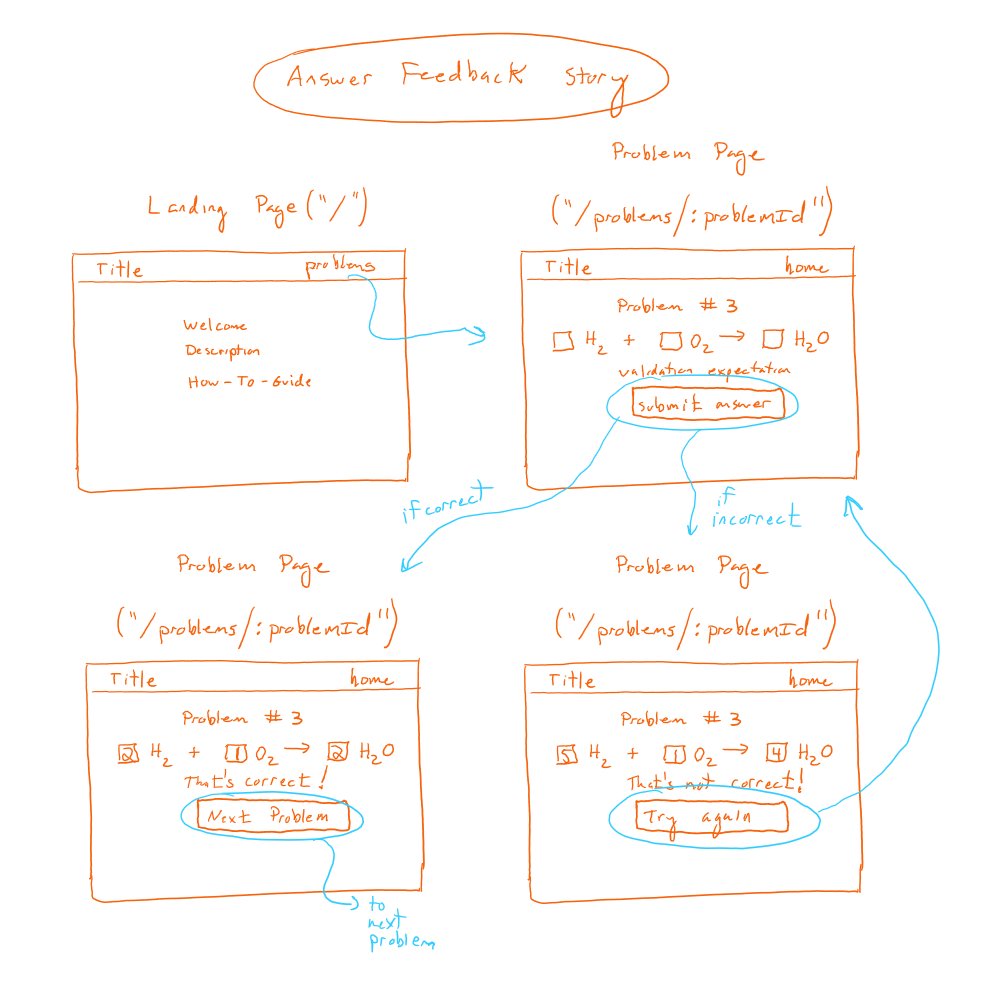 Answer Feedback Story
Landing Page ("/")
Title problems
Welcome
Description
How-To-Guide
Problem Page
("/problems/:problemId")
Title home
Problem # 3
H2 + O2 → H2O
validation expectation
submit answer
if correct
if
incorrect
Problem Page
("/problems/:problemId")
Title home
Problem # 3
2 H2 + 1 O2 → 2 H2O
That's correct!
Next Problem
to
next
problem
Problem Page
("/problems/:problemId")
Title home
Problem # 3
5 H2 + 1 O2 → 4 H2O
That's not correct!
Try again